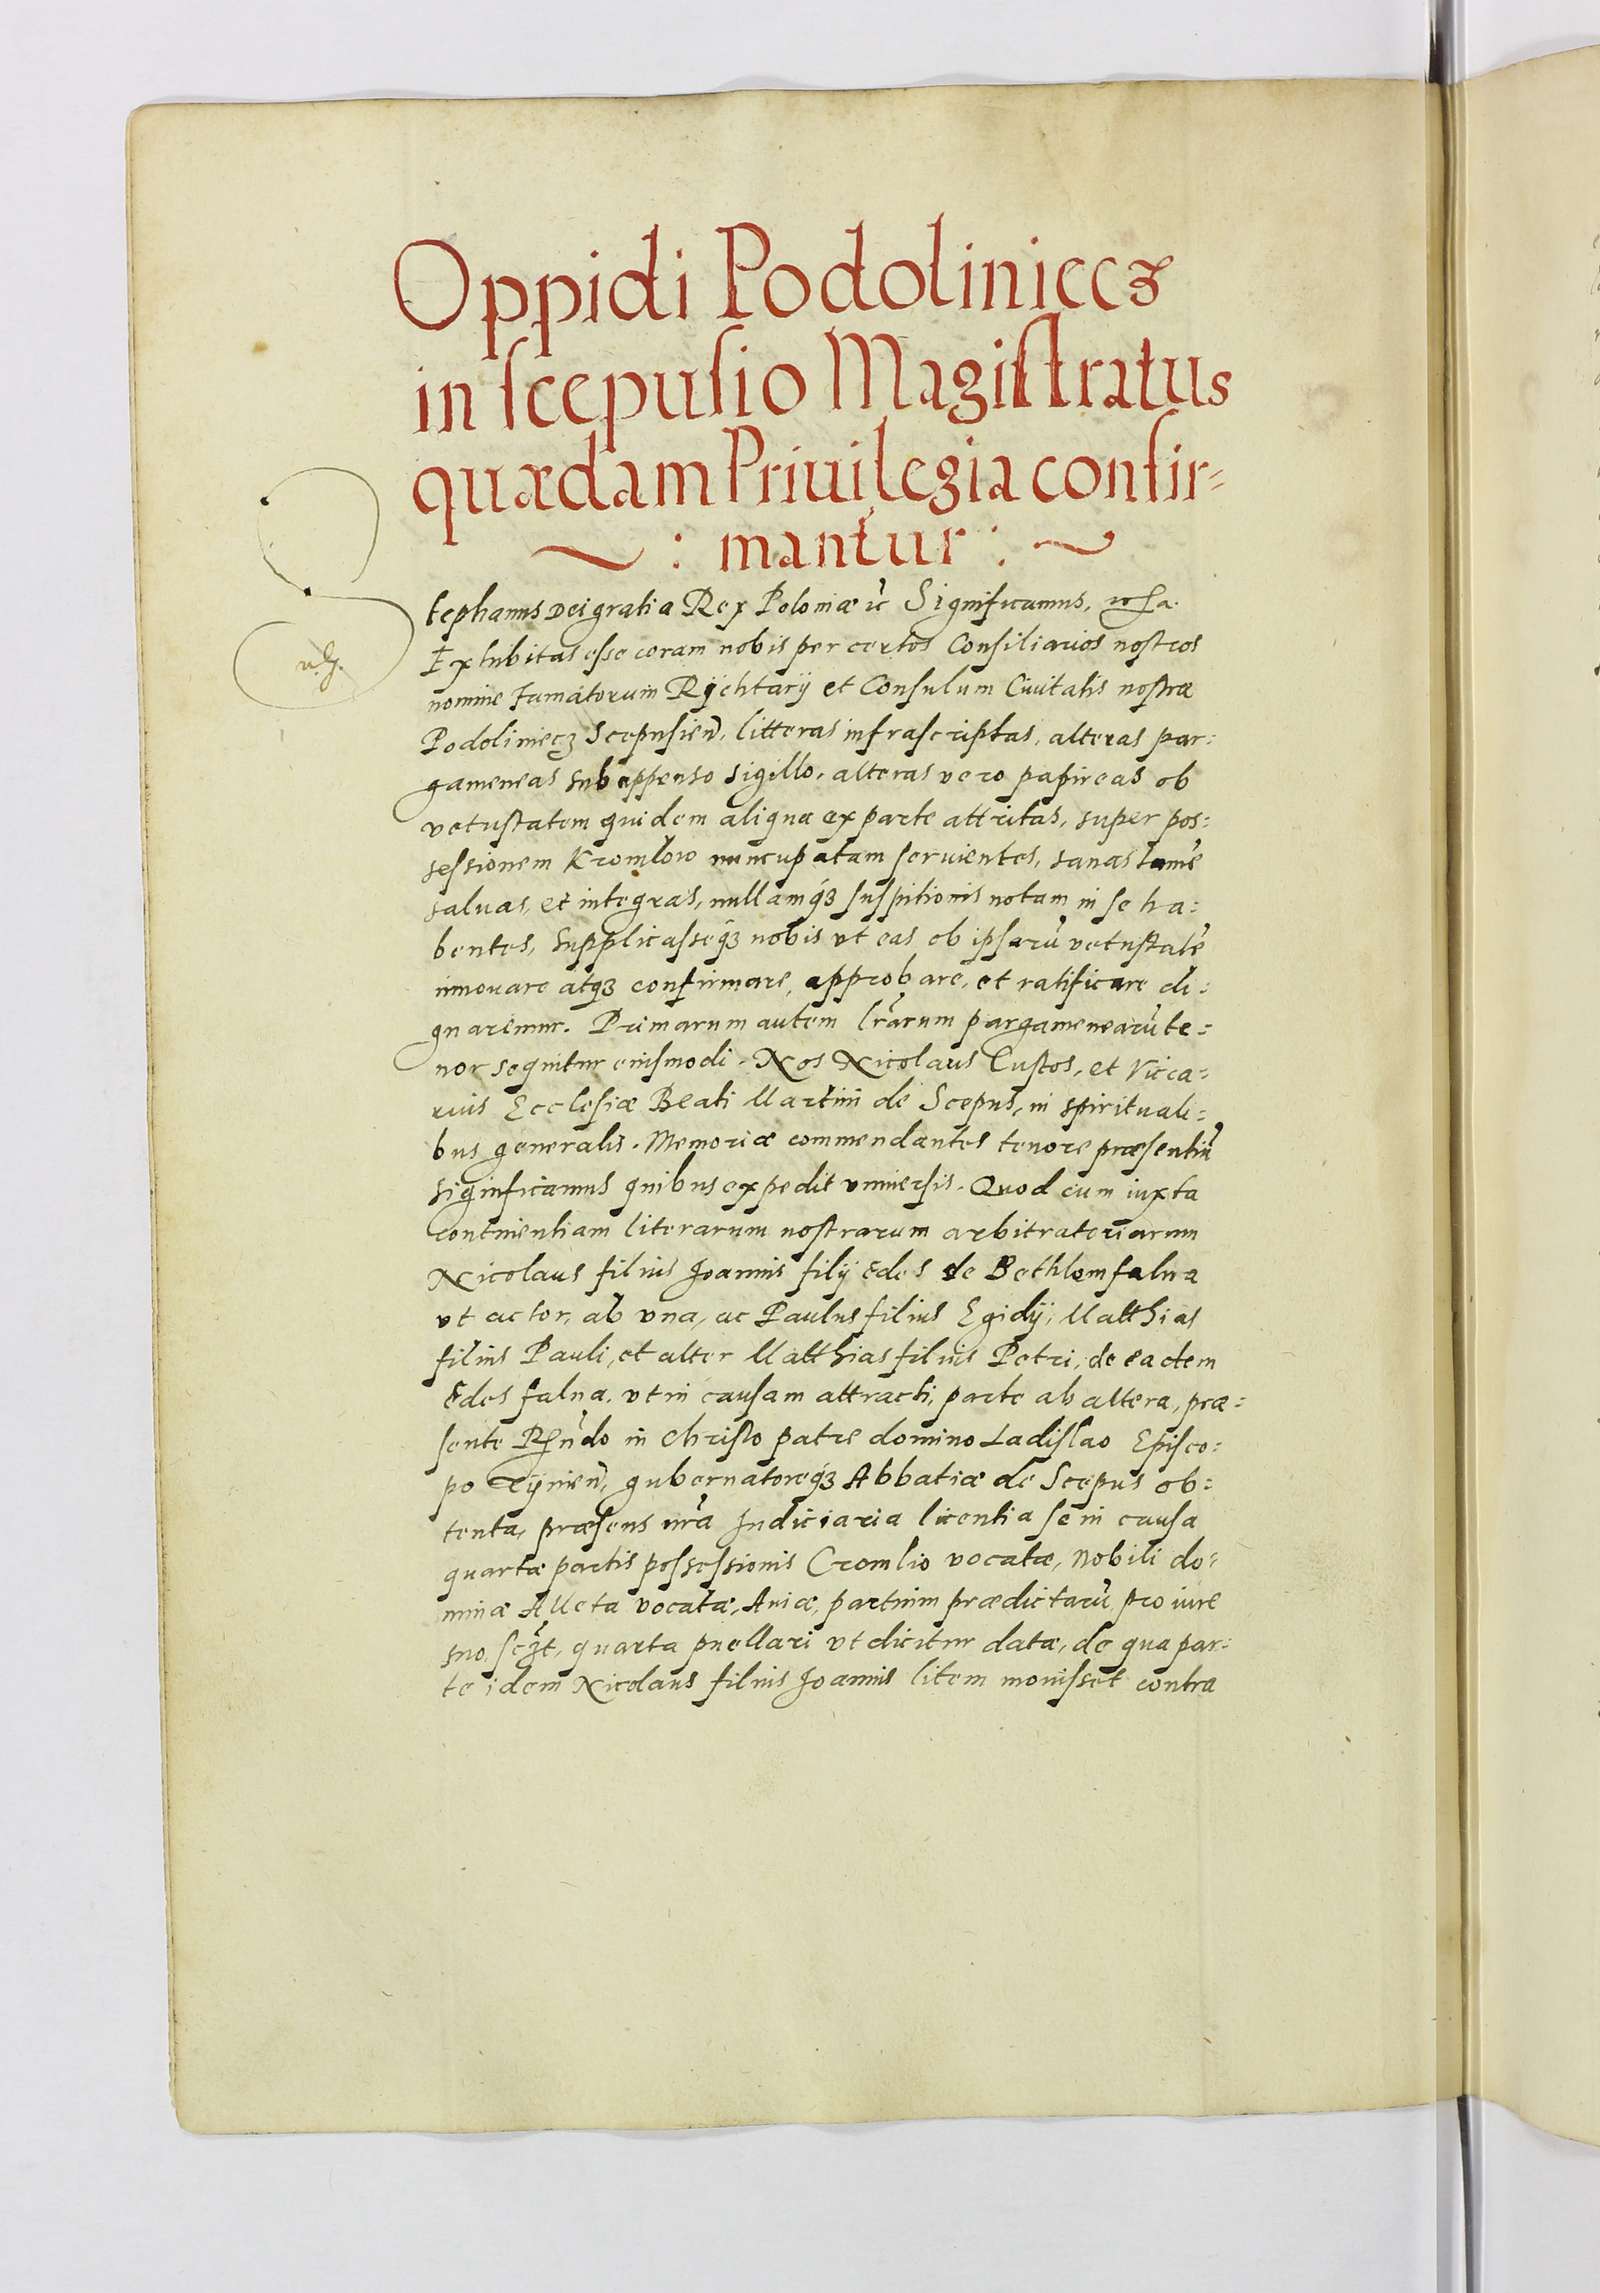 Oppidi Podoliniecz
in scepusio Magistratus
quædam Priuilegia confir=
: mantur :
Stephanus Dei gratia Rex Poloniæ Significamus,
Exhibitas esse coram nobis per certos Consiliarios nostros
nomine Famatorum Rÿchtarÿ et Consulum Ciuitatis nostræ
Podoliniecz Scepusien̄. litteras infrascriptas, alteras par=
gameneas sub appenso sigillo, alteras vero papireas ob
vetustatem quidem aliqua ex parte attritas, super pos=
sessionem Kromlow nuncupatam seruientes, sanas tamē
saluas, et integras, nullamq́ꝫ suspitionis notam in se ha=
bentes, supplicasseq́ꝫ nobis vt eas ob ipsarū vetustatē
innouare atqꝫ confirmare, approbare, et ratificare di=
gnaremur. Primarum autem lr̄arum pargamenearū te=
nor sequitur eiusmodi. Nos Nicolaus Custos, et Vicca=
rius Ecclesiæ Beati Martini de Scepus, in spirituali=
bus generalis. Memoriæ commendantes tenore præsentiū
significamus quibus expedit vniuersis. Quod cum iuxta
continentiam literarum nostrarum arbitratoriarum
Nicolaus filius Joannis filÿ Edes de Bethlemfalua
vt actor, ab vna, ac Paulus filius Egidÿ, Matthias
filius Pauli, et alter Matthias filius Petri, de eadem
Edes falua. vt in causam attracti, parte ab altera, præ=
sente Rn̄do in Christo patre domino Ladislao Episco=
po Tÿnien̄, gubernatoreq́ꝫ Abbatiæ de Scepus ob=
tenta, præsens nr̄a Judiciaria licentia se in causa
quartæ partis possessionis Cromlio vocatæ, Nobili do=
minæ Alleta vocatæ, Auiæ, partium prædictarū pro iure
suo, quarta puellari vt dicitur datæ, de qua par=
te idem Nicolaus filius Joannis litem mouisset contra